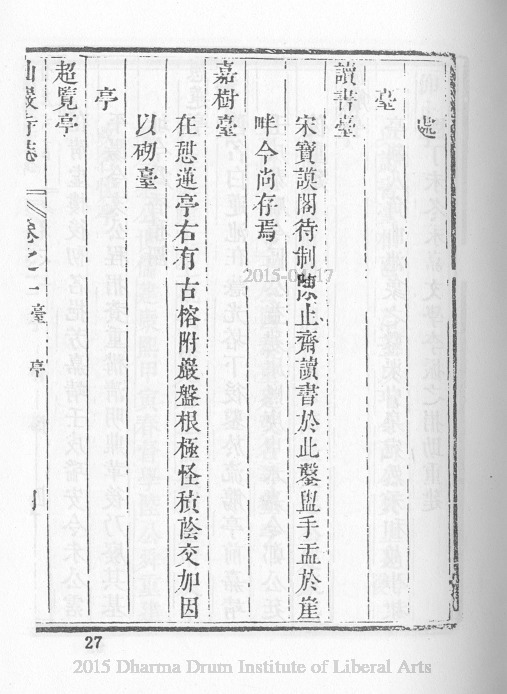 臺
讀書臺
宋寶謨閣待制陳止齋讀書於此鑿盥手盂於崖
畔今尚存焉
嘉樹臺
在憇蓮亭右有古榕附巖盤根極怪積蔭交加因
以砌臺
亭
超覽亭
仙巖寺志 卷之一 臺 亭
27
2015-04-17
2015 Dharma Drum Institute of Liberal Arts